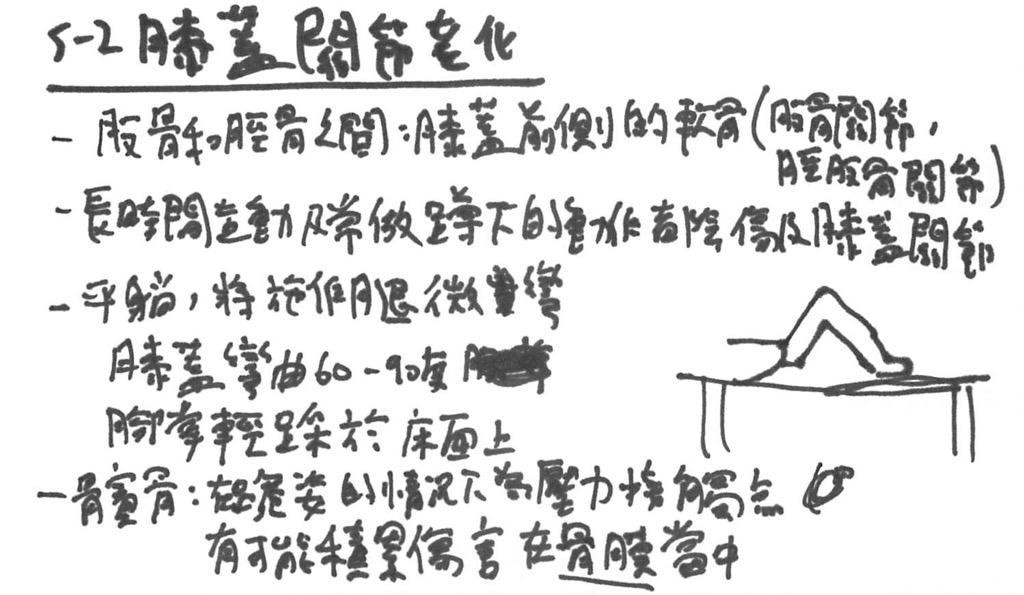 5-2 膝蓋關節老化
- 股骨和脛骨之間:膝蓋前側的軟骨(股骨關節,
脛股骨關節)
- 長時間走動及常做蹲下的動作者陰傷及膝蓋關節
- 平躺,將施作腿微彎
膝蓋彎曲60-90度
腳掌輕踩於床面上
- 骨賓骨:在跪姿的情況下為壓力接觸高点
有可能積累傷害在骨膜當中